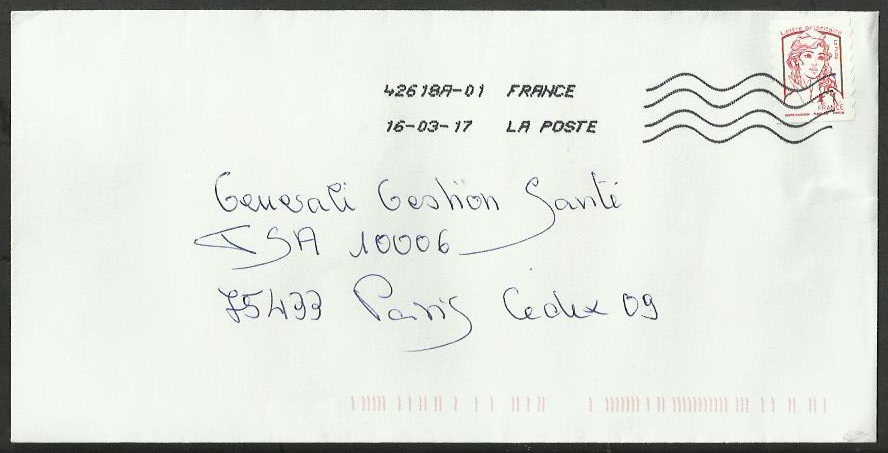 Lettre prioritaire
La Poste
42618A-01 FRANCE
16-03-17 LA POSTE
FRANCE
Generali Gestion Santé
TSA 10006
75433 Paris Cedex 09